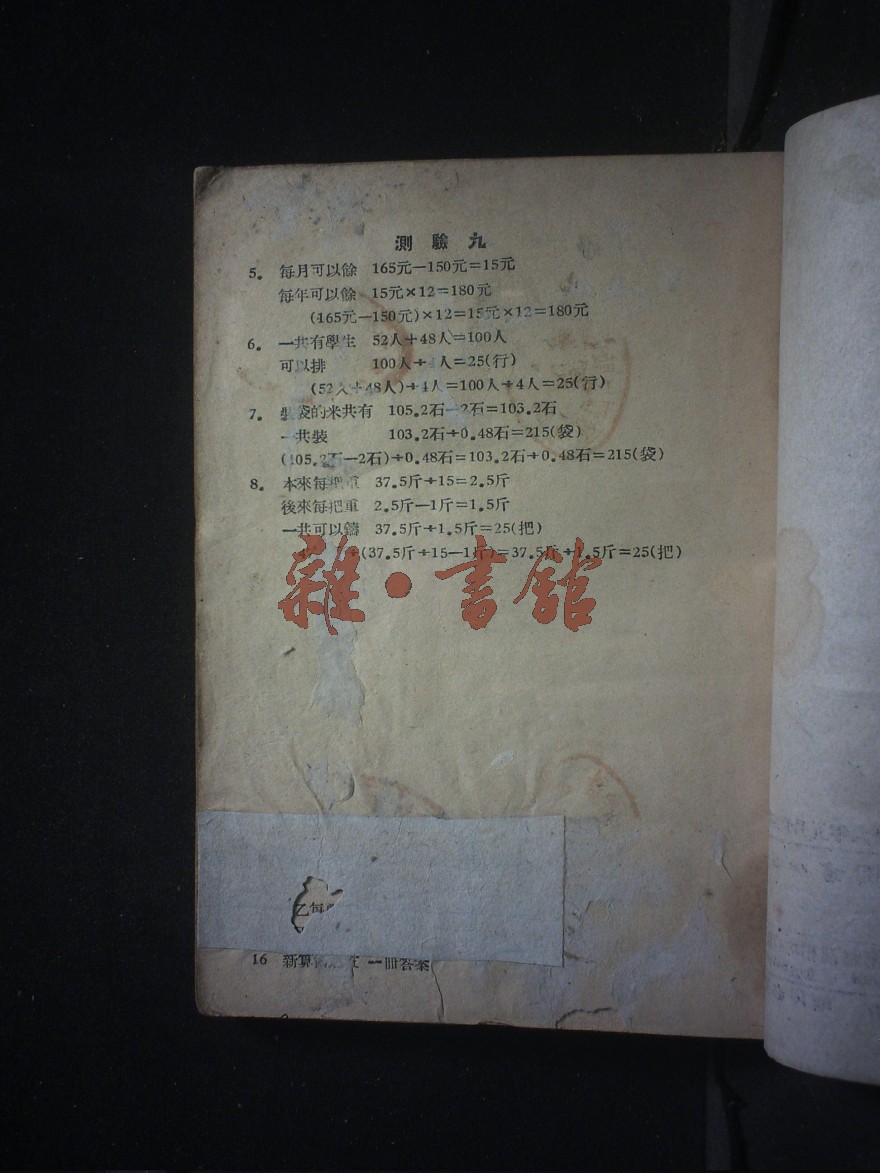 測驗九
5. 每月可以餘 165元—150元=15元
每年可以餘 15元×12=180元
(165元—150元)×12=15元×12=180元
6. 一共有學生 52人+48人=100人
可以排 100人÷ 人=25(行)
(52人+48人)÷4人=100人÷4人=25(行)
7. 裝袋的米共有 105.2石—2石=103.2石
一共裝 103.2石÷0.48石=215(袋)
(105.2石—2石)÷0.48石=103.2石÷0.48石=215(袋)
8. 本來每把重 37.5斤÷15=2.5斤
後來每把重 2.5斤—1斤=1.5斤
一共可以鑄 37.5斤÷1.5斤=25(把)
÷(37.5斤÷15—1斤)=37.5斤÷1.5斤=25(把)
雜·書館
乙每
16 新算 一冊答案